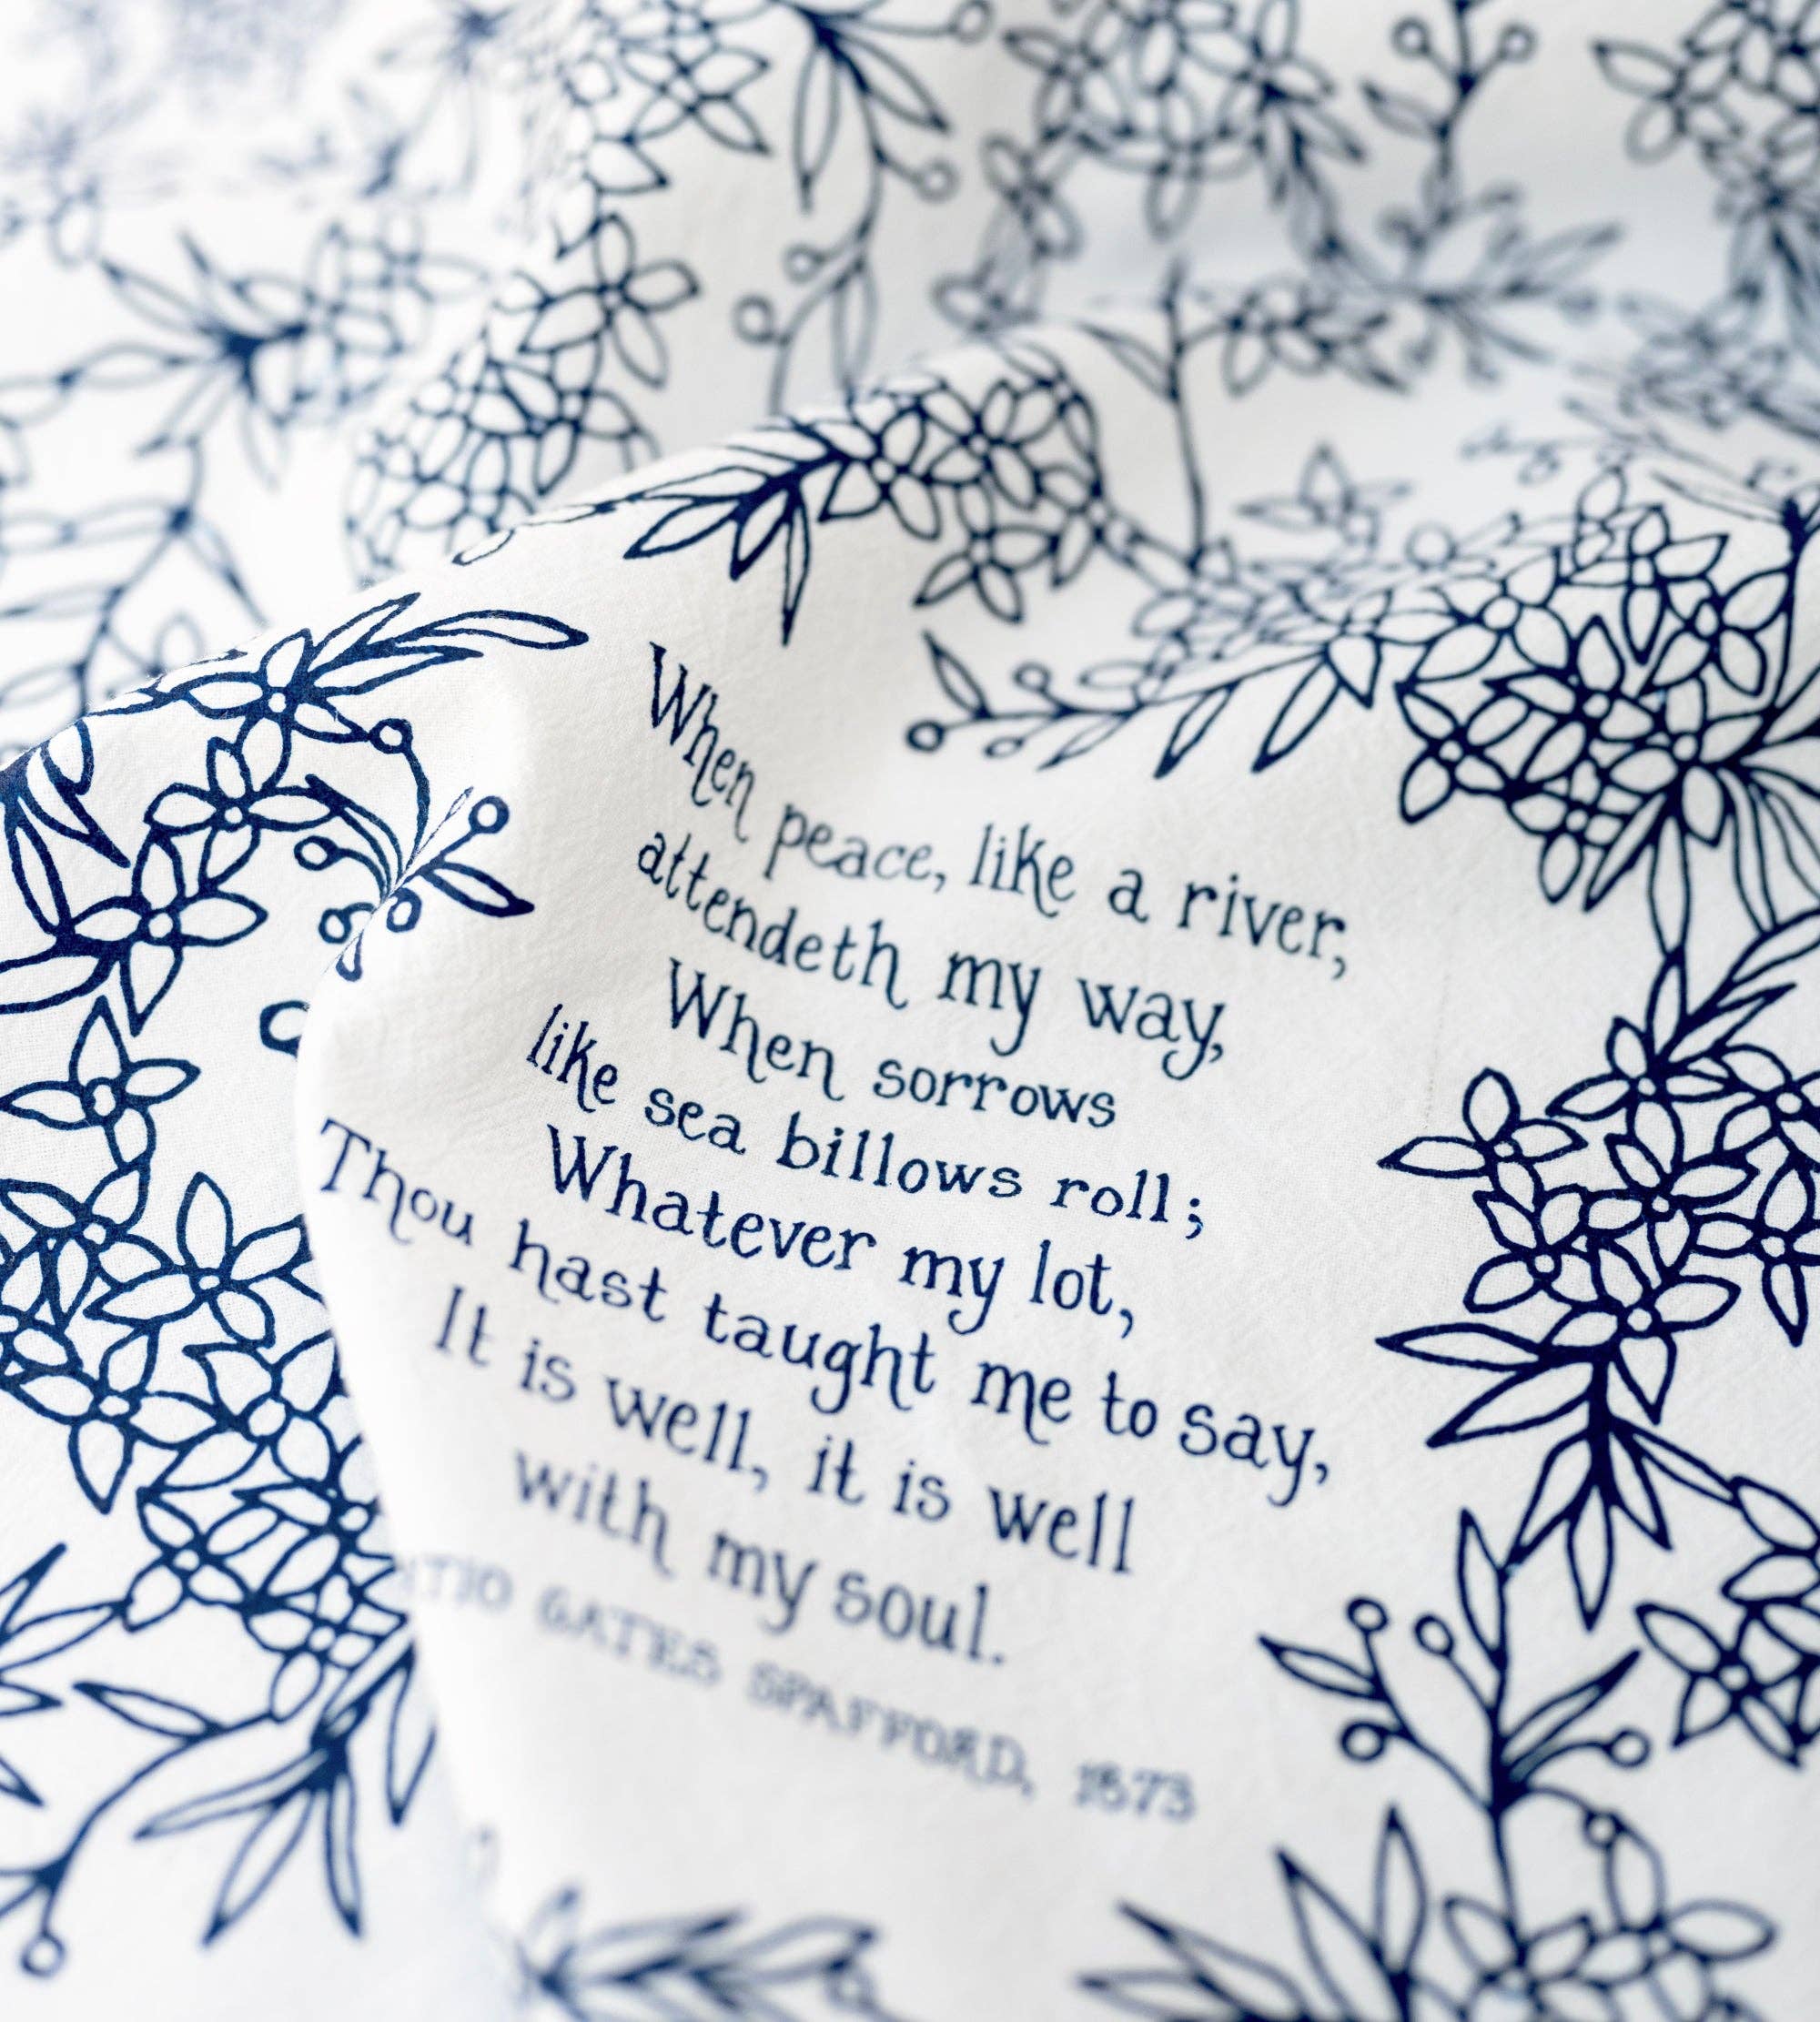 When peace, like a river,
attendeth my way,
When sorrows
like sea billows roll;
Whatever my lot,
Thou hast taught me to say,
It is well, it is well
with my soul.
GATES SPAFFORD, 1873